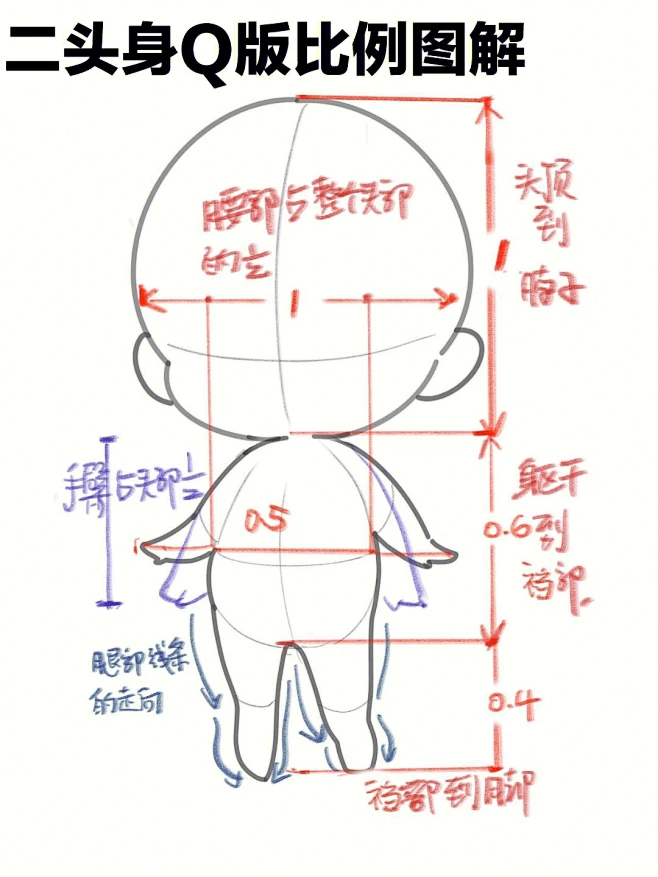 二头身Q版比例图解
头顶
到
脖子
腰部占整体头部
的½
1
1
手臂占头部½
0.5
躯干
0.6到
裆部
腿部线条
的走向
0.4
裆部到脚